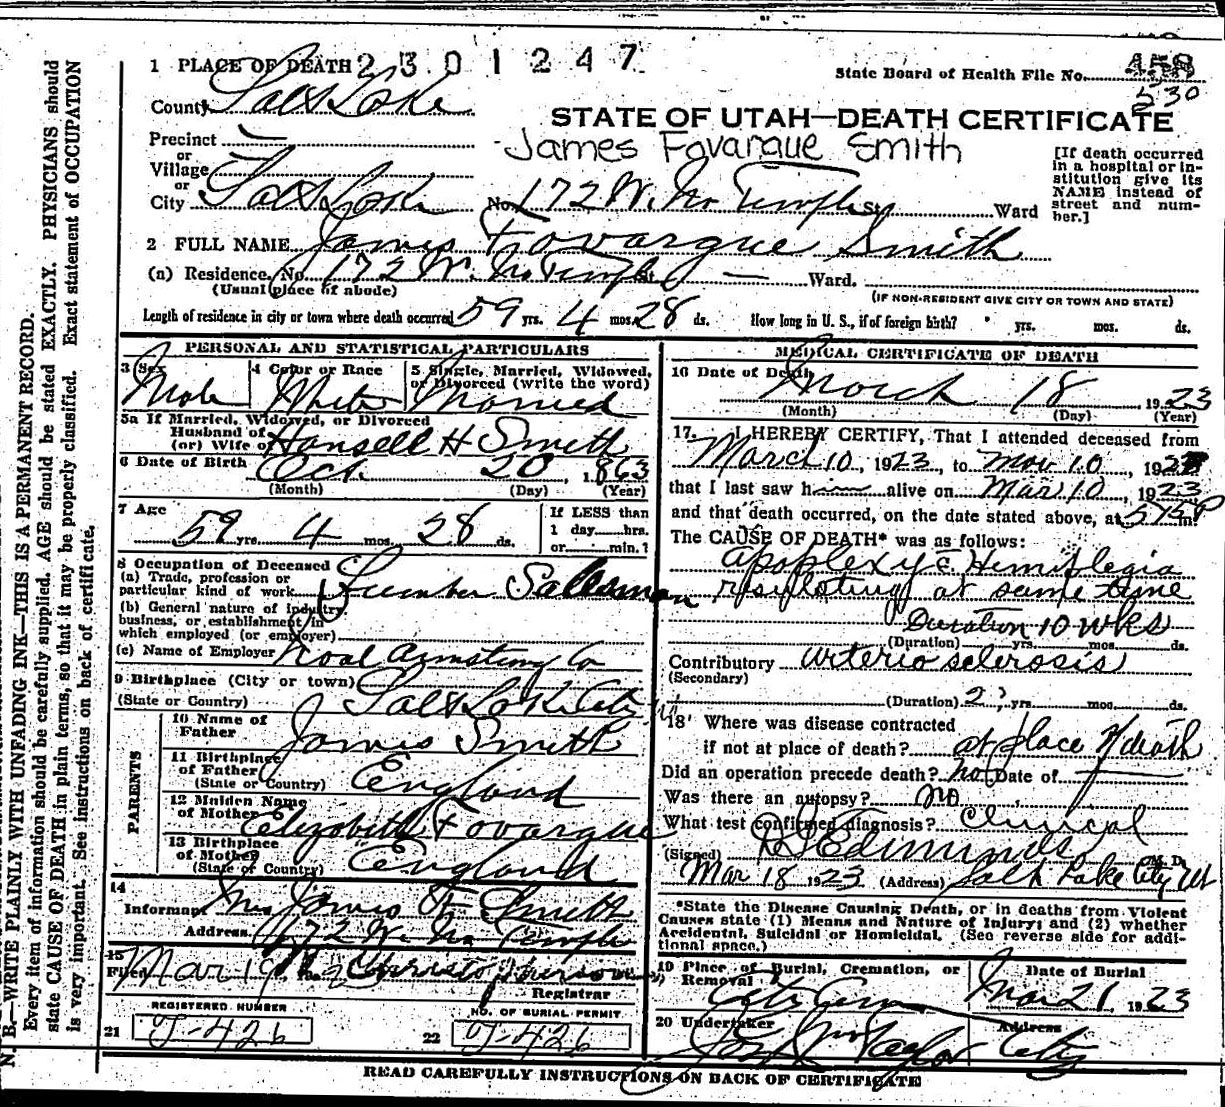 1 PLACE OF DEATH 2 3 0 1 2 4 7
State Board of Health File No. 530
County Salt Lake
STATE OF UTAH—DEATH CERTIFICATE
Precinct
or
James Fovargue Smith
Village
or
City Salt Lake No. 172 W. No Temple St. Ward
[If death occurred
in a hospital or in-
stitution give its
NAME instead of
street and num-
ber.]
2 FULL NAME James Fovargue Smith
(a) Residence. No. 172 W. No Temple St. — Ward.
(Usual place of abode)
(IF NON-RESIDENT GIVE CITY OR TOWN AND STATE)
Length of residence in city or town where death occurred 59 yrs. 4 mos. 28 ds. How long in U. S., if of foreign birth? yrs. mos. ds.
PERSONAL AND STATISTICAL PARTICULARS
3 Sex Male
4 Color or Race White
5 Single, Married, Widowed,
or Divorced (write the word)
Married
5a If Married, Widowed, or Divorced
Husband of
(or) Wife of Hansell H Smith
6 Date of Birth Oct. 20, 1863
(Month) (Day) (Year)
7 Age 59 yrs. 4 mos. 28 ds.
If LESS than
1 day......hrs.
or......min.?
8 Occupation of Deceased
(a) Trade, profession or
particular kind of work Lumber Salesman
(b) General nature of industry
business, or establishment in
which employed (or employer)
(c) Name of Employer Armstrong Co
9 Birthplace (City or town) Salt Lake City
(State or Country)
PARENTS
10 Name of
Father James Smith
11 Birthplace
of Father England
(State or Country)
12 Maiden Name
of Mother Elizabeth Fovargue
13 Birthplace
of Mother England
(State or Country)
14
Informant Mrs James F. Smith
Address 172 W. No Temple
15
Filed Mar 19
Registrar
REGISTERED NUMBER
21 J-426
NO. OF BURIAL PERMIT
22 J-426
MEDICAL CERTIFICATE OF DEATH
16 Date of Death March 18 1923
(Month) (Day) (Year)
17. I HEREBY CERTIFY, That I attended deceased from
March 10, 1923, to Mar 10, 192
that I last saw h im alive on Mar 10, 1923
and that death occurred, on the date stated above, at 515 P m.
The CAUSE OF DEATH* was as follows:
apoplexy c̄ Hemiplegia
resulting at same time
Duration 10 wks
(Duration) yrs. mos. ds.
Contributory arterio sclerosis
(Secondary)
(Duration) 2? yrs. mos. ds.
18 Where was disease contracted
if not at place of death? at place of death
Did an operation precede death? no Date of
Was there an autopsy? no
What test confirmed diagnosis? Clinical
(Signed) Edmunds M. D.
Mar 18 1923 (Address) Salt Lake City Ut
*State the Disease Causing Death, or in deaths from Violent
Causes state (1) Means and Nature of Injury; and (2) whether
Accidental, Suicidal or Homicidal. (See reverse side for addi-
tional space.)
19 Place of Burial, Cremation, or
Removal City Cem
Date of Burial
Mar 21 1923
20 Undertaker Address
Taylor City
READ CAREFULLY INSTRUCTIONS ON BACK OF CERTIFICATE
N. B.—WRITE PLAINLY WITH UNFADING INK—THIS IS A PERMANENT RECORD.
Every item of information should be carefully supplied. AGE should be stated EXACTLY. PHYSICIANS should
state CAUSE OF DEATH in plain terms, so that it may be properly classified. Exact statement of OCCUPATION
is very important. See instructions on back of certificate.